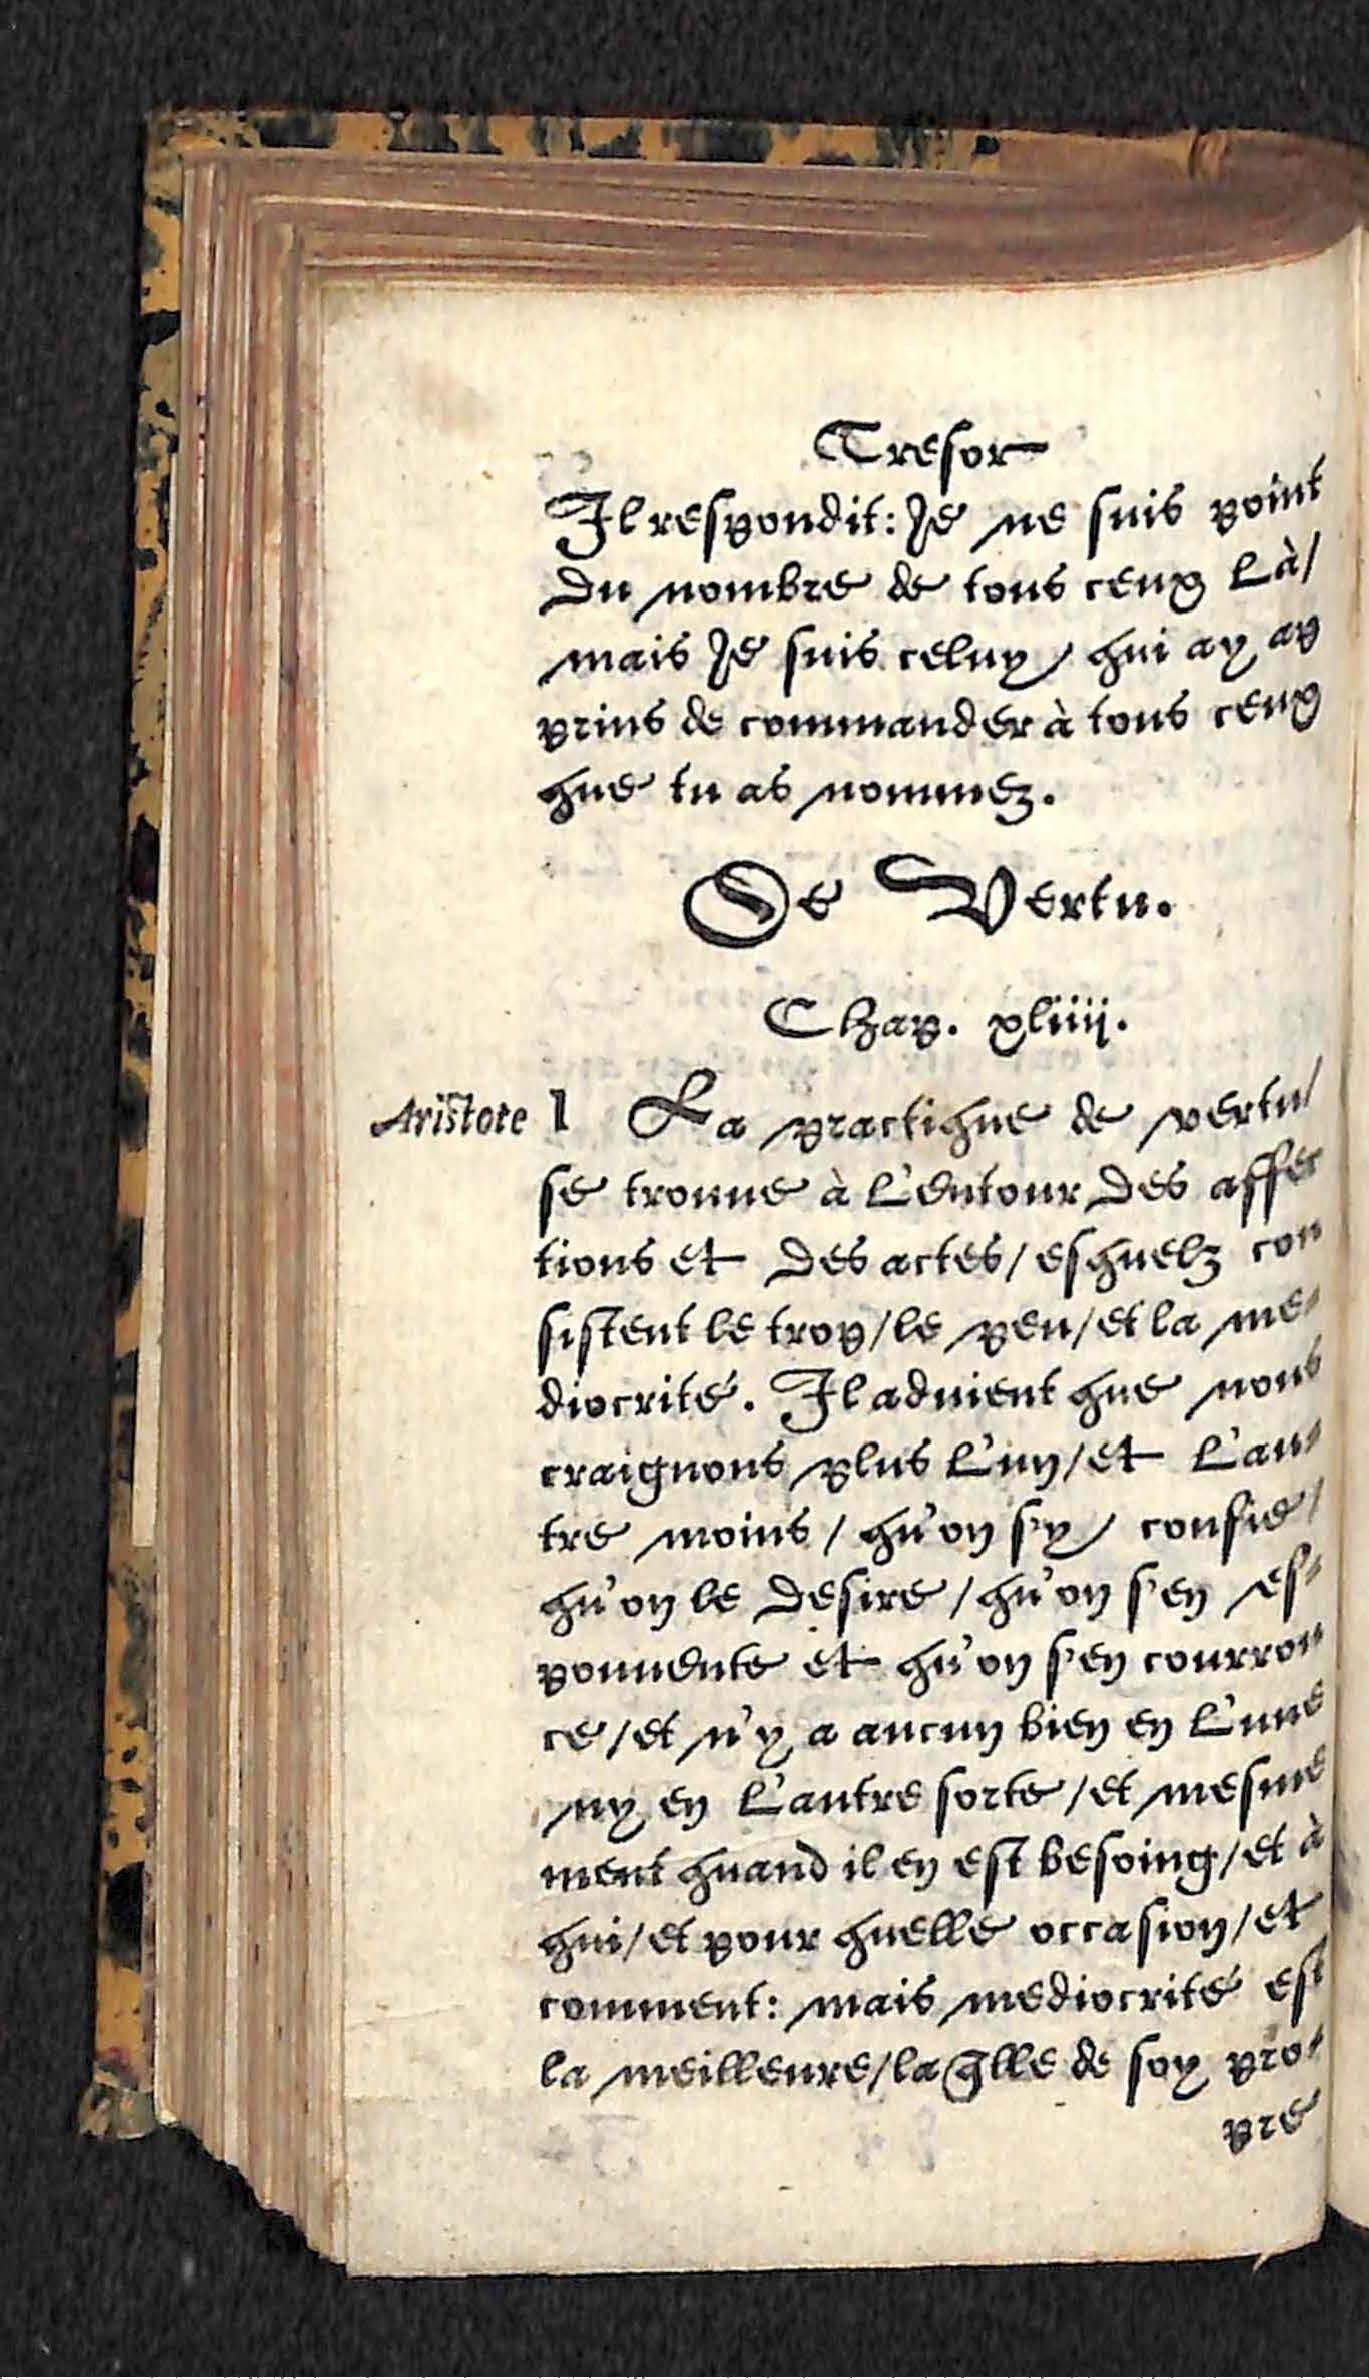 Tresor
Il respondit: Je ne suis point
du nombre de tous ceux là/
mais Je suis celuy/ qui ay ap
prins de commander à tous ceux
que tu as nommez.
De Vertu.
Chap. xliiij.
Aristote 1 La practique de vertu/
se trouue à l'entour des affec
tions et des actes/ esquelz con
sistent le trop/ le peu/ et la me-
diocrité. Il aduient que nous
craignons plus l'un/ et l'au-
tre moins/ qu'on s'y confie/
qu'on le desire/ qu'on s'en es-
pouuente et qu'on s'en courrou
ce/ et n'y a aucun bien en l'une
ny en l'autre sorte/ et mesme
ment quand il en est besoing/ et à
qui/ et pour quelle occasion/ et
comment: mais mediocrité est
la meilleure/ la q̃lle de soy pro-
pre